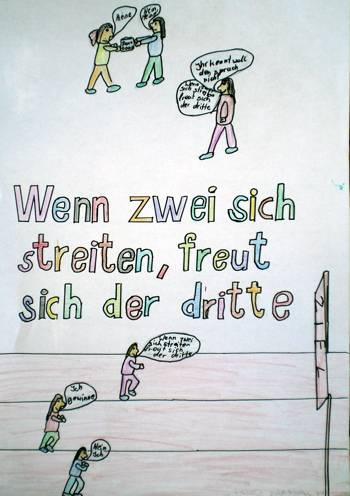 Nein
Ihr kennt woll
den spruch
nicht
Wenn
sich streiten
freut sich
der dritte
Wenn zwei sich
streiten, freut
sich der dritte
ZIEL
Wenn zwei
sich streiten
freut sich
der dritte
Ich
Gewinne
Nein
Ich